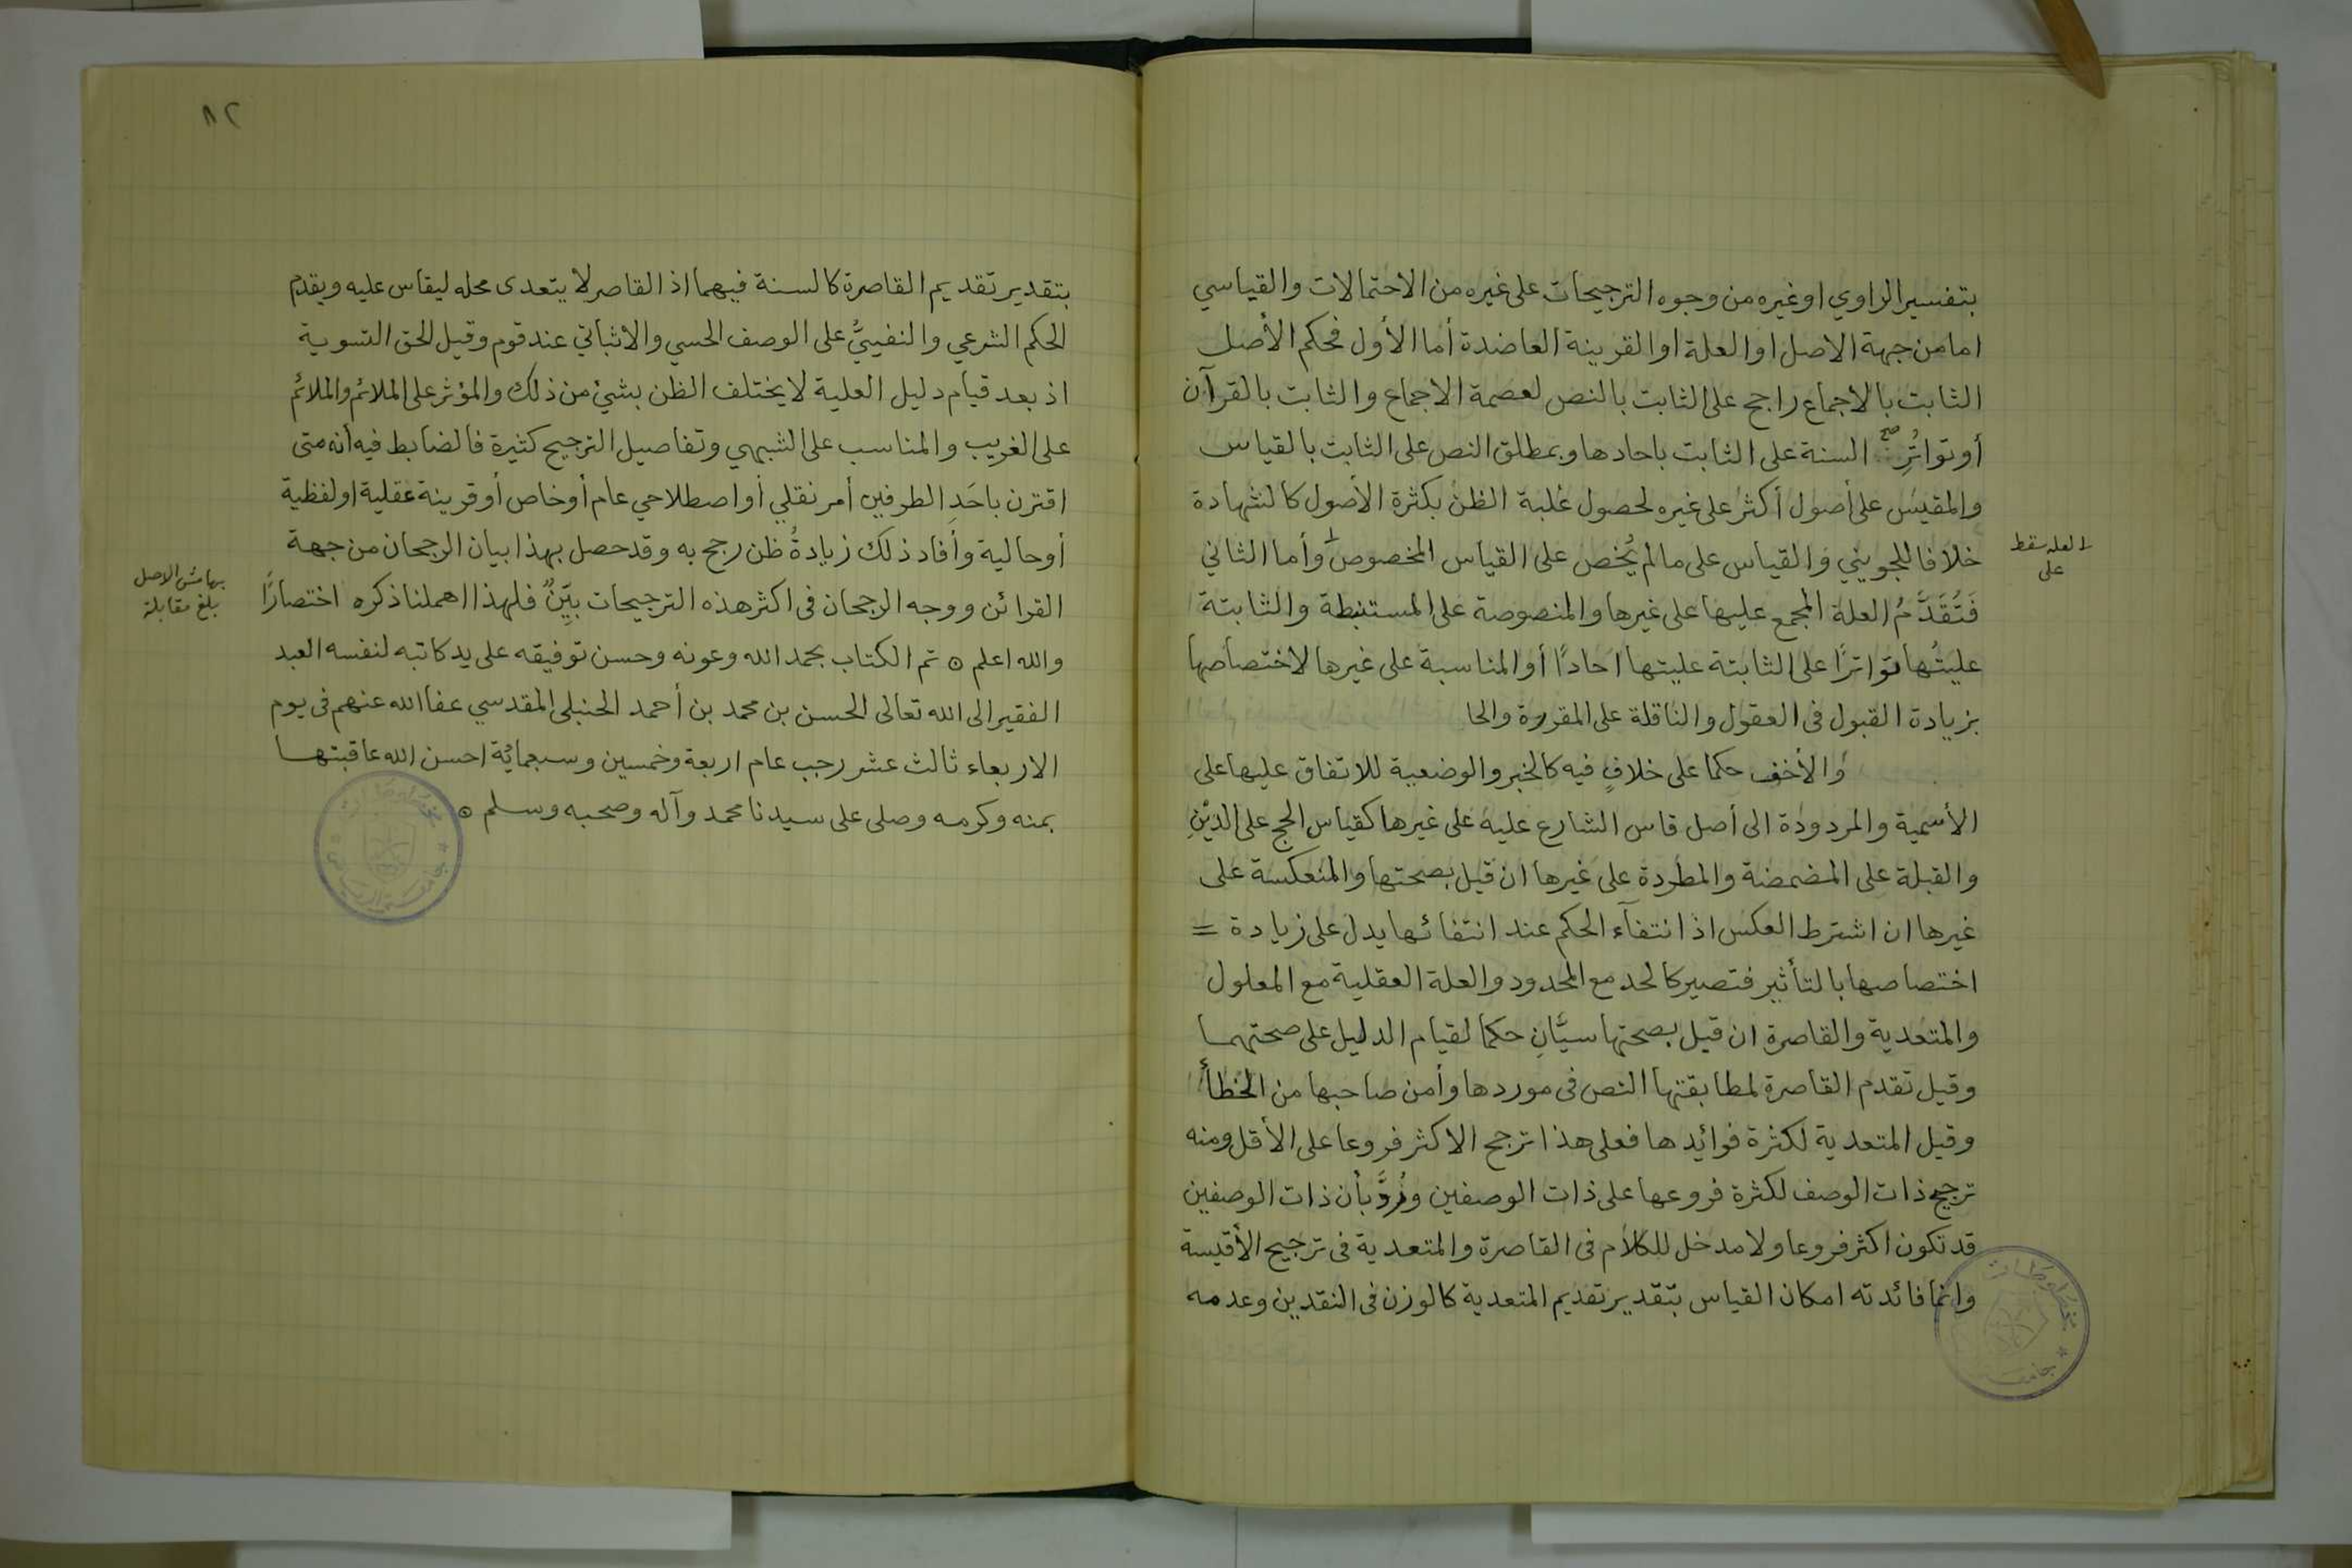 بتفسير الراوي او غيره من وجوه الترجيحات على غيره من الاحتمالات والقياسي
اما من جهة الاصل او العلة او القرينة العاضدة أما الأول فحكم الأصل
الثابت بالاجماع راجح على الثابت بالنص لعصمة الاجماع والثابت بالقرآن
أو تواتُرِ صح السنة على الثابت باحادها وبمطلق النص على الثابت بالقياس
والمقيس على أصول أكثر على غيره لحصول غلبة الظن بكثرة الأصول كالشهادة
خلافا للجويني والقياس على ما لم يُخص على القياس المخصوص وأما الثاني
لعله سقط
على
فَتُقَدَّمُ العلة المجمع عليها على غيرها والمنصوصة على المستنبطة والثابتة
عليتُها تواترًا على الثابتة عليتها احادًا أو المناسبة على غيرها لاختصاصها
بزيادة القبول فى العقول والناقلة على المقررة والحا
والأخف حكما على خلافٍ فيه كالخبر والوضعية للاتفاق عليها على
الأسمية والمردودة الى أصل قاس الشارع عليه على غيرها كقياس الحج على الدَيْنِ
والقبلة على المضمضة والمطردة على غيرها ان قيل بصحتها والمنعكسة على
غيرها ان اشترط العكس اذ انتفآء الحكم عند انتفائها يدل على زيادة =
اختصاصها بالتأثير فتصير كالحد مع المحدود والعلة العقلية مع المعلول
والمتعدية والقاصرة ان قيل بصحتها سيَّانِ حكما لقيام الدليل على صحتهما
وقيل تقدم القاصرة لمطابقتها النص فى موردها وأمن صاحبها من الخطأ
وقيل المتعدية لكثرة فوائدها فعلى هذا ترجح الاكثر فروعا على الأقل ومنه
ترجيح ذات الوصف لكثرة فروعها على ذات الوصفين ورُدَّ بأن ذات الوصفين
قد تكون اكثر فروعا ولا مدخل للكلام فى القاصرة والمتعدية فى ترجيح الأقيسة
وانما فائدته امكان القياس بتقدير تقديم المتعدية كالوزن فى النقدين وعدمه
مخطوطات
جامعة
٨٢
بتقدير تقديم القاصرة كالسنة فيهما اذ القاصر لا يتعدى محله ليقاس عليه ويقدم
الحكم الشرعي والنفييُّ على الوصف الحسي والاثباتي عند قوم وقيل الحق التسوية
اذ بعد قيام دليل العلية لا يختلف الظن بشئ من ذلك والمؤثر على الملائم والملائم
على الغريب والمناسب على الشبهي وتفاصيل الترجيح كثيرة فالضابط فيه أنه متى
اقترن باحَدِ الطرفين أمر نقلي أو اصطلاحي عام أو خاص أو قرينة عقلية او لفظية
أو حالية وأفاد ذلك زيادةُ ظن رجح به وقد حصل بهذا بيان الرجحان من جهة
القرائن ووجه الرجحان فى اكثر هذه الترجيحات بيِّنٌ فلهذا اهملنا ذكره اختصارًا
بهامش الاصل
بلغ مقابلة
والله اعلم ه تم الكتاب بحمد الله وعونه وحسن توفيقه على يد كاتبه لنفسه العبد
الفقير الى الله تعالى الحسن بن محمد بن أحمد الحنبلى المقدسي عفا الله عنهم فى يوم
الاربعاء ثالث عشر رجب عام اربعة وخمسين وسبعمائة احسن الله عاقبتها
بمنه وكرمه وصلى على سيدنا محمد وآله وصحبه وسلم ه
مخطوطات
جامعة الرياض